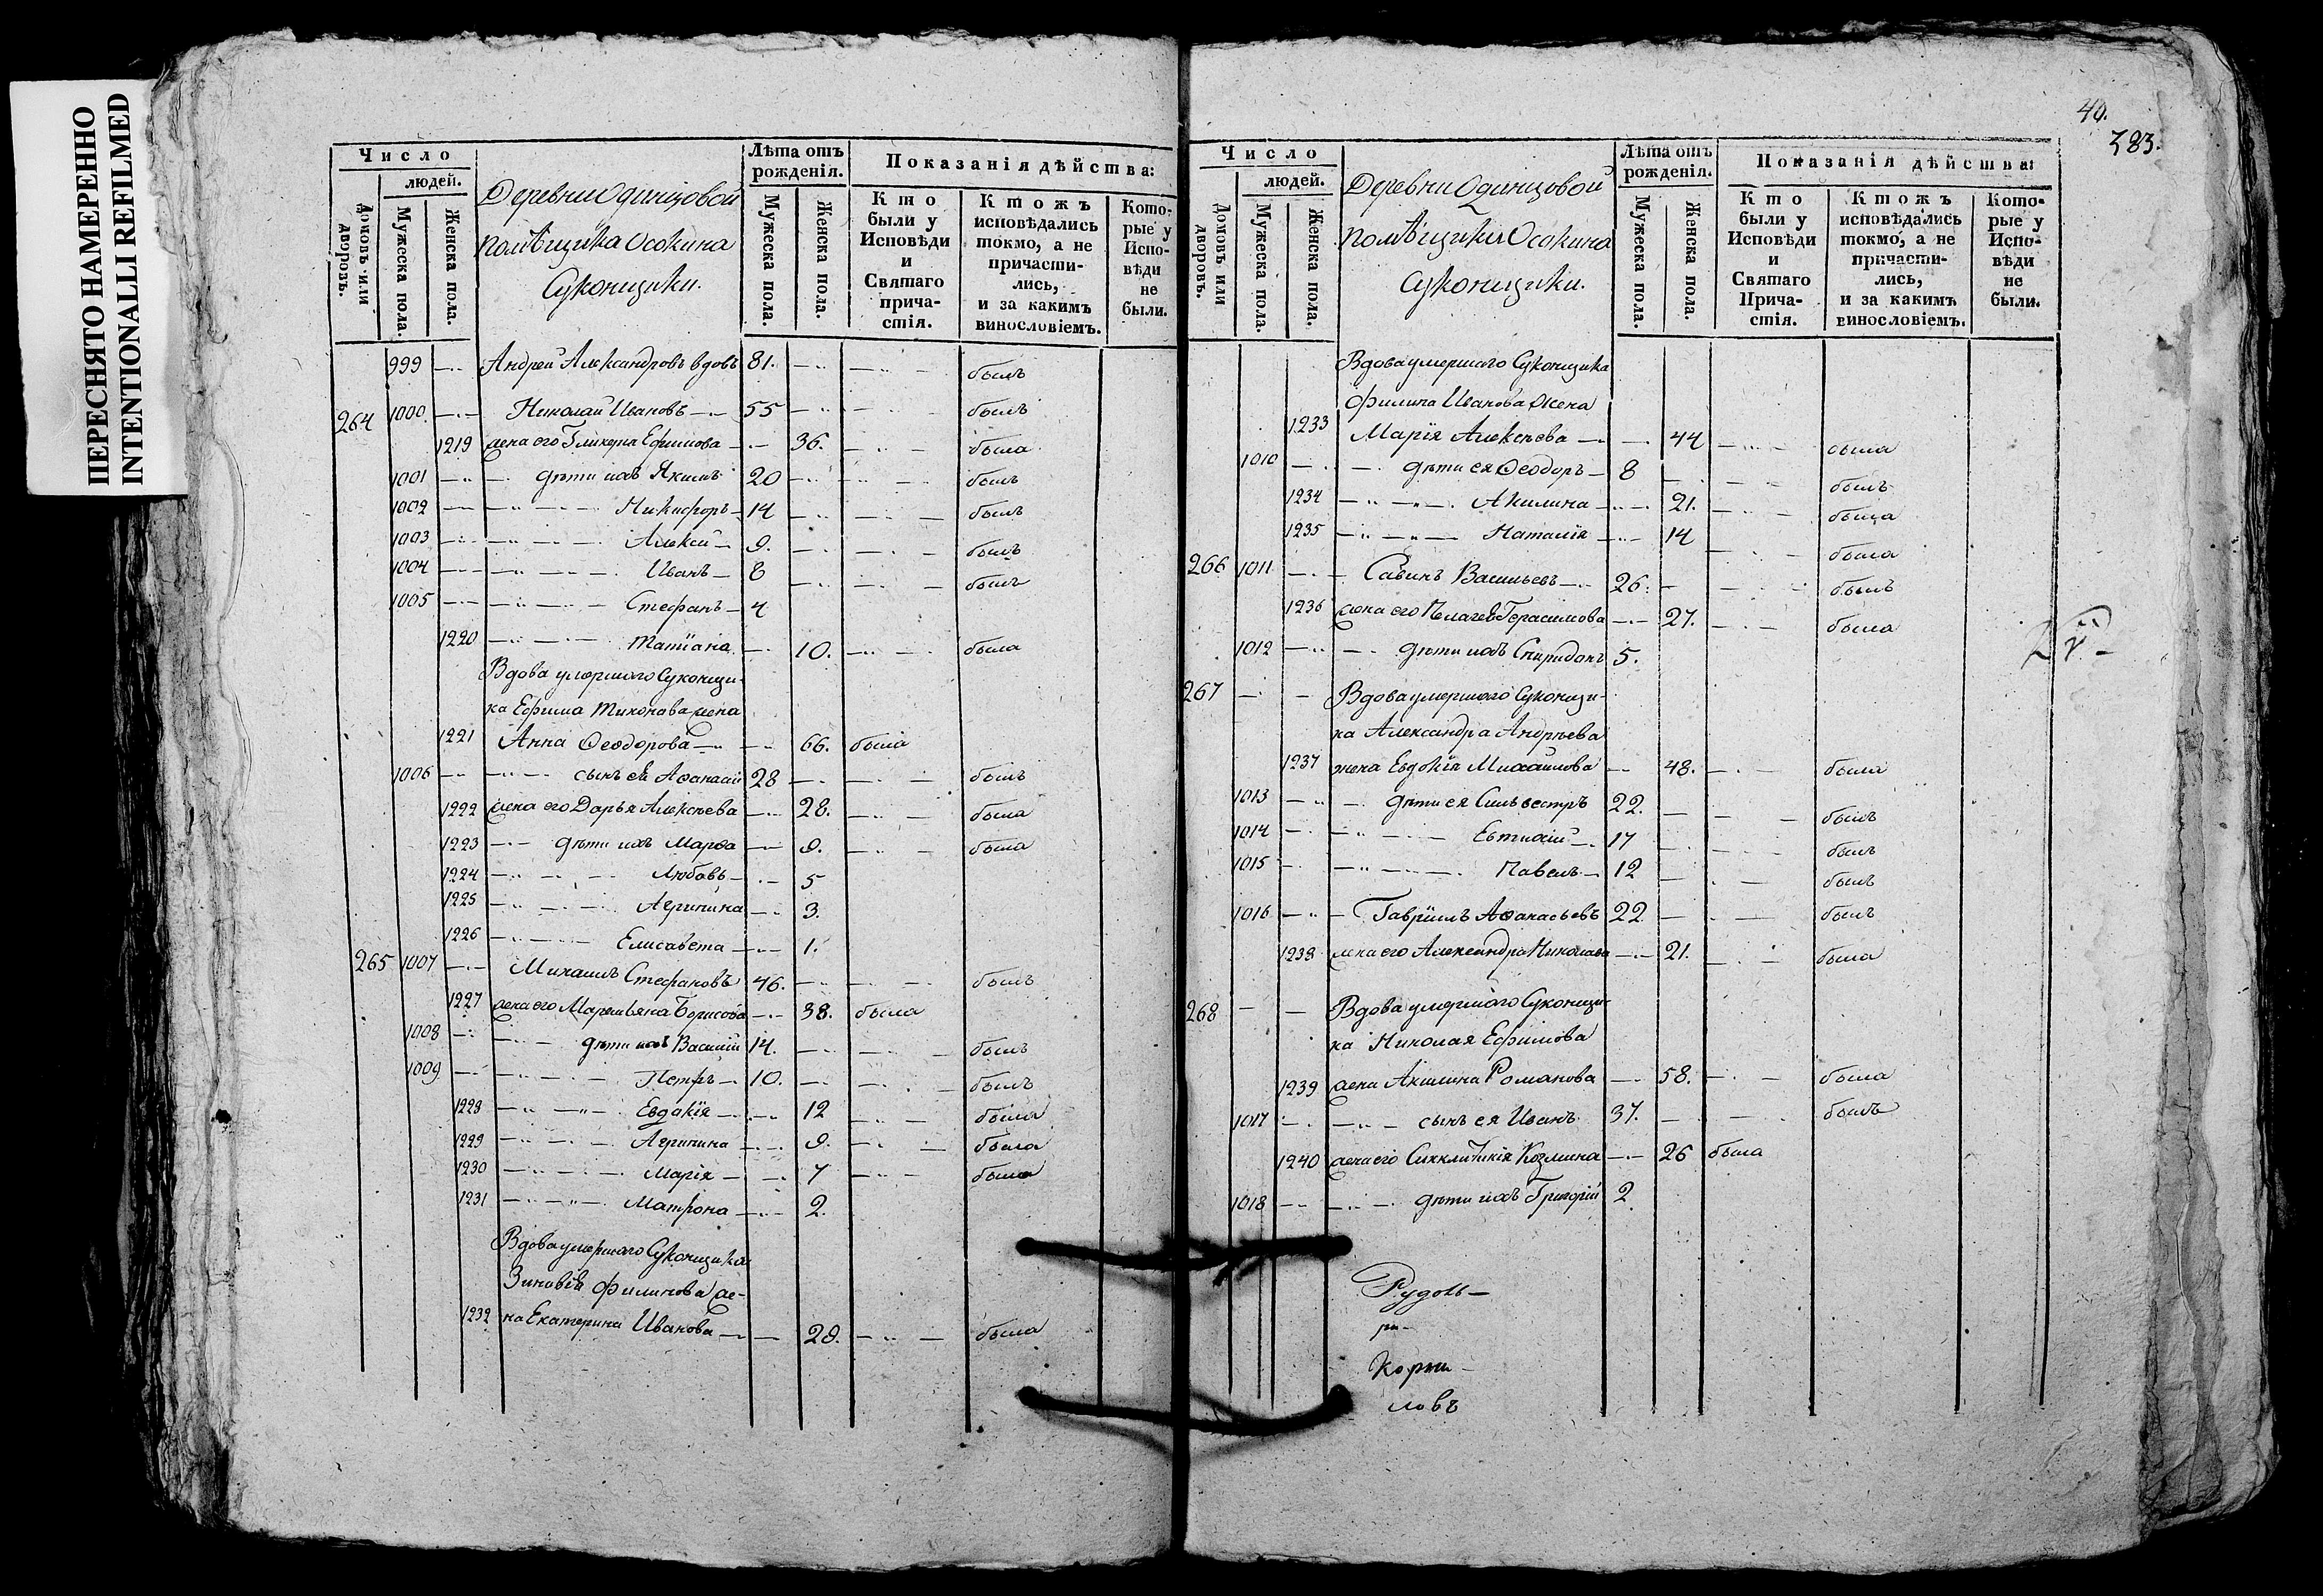 ПЕРЕСНЯТО НАМЕРЕННО
INTENTIONALLI REFILMED
Число
людей.
Домовъ или дворовъ.
Мужеска пола.
Женска пола.
Деревни Одинцовой
помѣщика Осокина
Суконщики.
Лѣта отъ рожденія.
Мужеска пола.
Женска пола.
Показанія дѣйства:
Кто были у Исповѣди и Святаго причастія.
Ктожъ исповѣдались токмо, а не причастились, и за какимъ винословіемъ.
Которые у Исповѣди не были.
999 Андрей Александровъ вдовъ 81. былъ
264 1000 Николай Ивановъ 55 былъ
1219 жена его Гликерия Ефимова 36. была
1001 дѣти ихъ Якимъ 20 былъ
1002 Никифоръ 14 былъ
1003 Алексѣй 9. былъ
1004 Иванъ 8 былъ
1005 Стефанъ 4
1220 Татіана 10. была
Вдова умершаго Суконщи-
ка Ефима Тихонова жена
1221 Анна Ѳеодорова 66. была
1006 сынъ ея Аѳанасій 28 былъ
1222 жена его Дарья Алексѣева 28. была
1223 дѣти ихъ Марѳа 9. была
1224 Любовь 5
1225 Агрипина 3.
1226 Елисавета 1.
265 1007 Михаилъ Стефановъ 46. былъ
1227 жена его Маремьяна Борисова 38. была
1008 дѣти ихъ Василій 14. былъ
1009 Петръ 10. былъ
1228 Евдокія 12 была
1229 Агрипина 9. была
1230 Марія 7 была
1231 Матрона 2.
Вдова умершаго Суконщика
Зиновія Филипова же-
1232 на Екатерина Иванова 29. была
40.
383.
Число
людей.
Домовъ или дворовъ.
Мужеска пола.
Женска пола.
Деревни Одинцовой
помѣщики Осокина
Суконщики.
Лѣта отъ рожденія.
Мужеска пола.
Женска пола.
Показанія дѣйства:
Кто были у Исповѣди и Святаго Причастія.
Ктожъ исповѣдались токмо, а не причастились, и за какимъ винословіемъ.
Которые у Исповѣди не были.
Вдова умершаго Суконщика
Филипа Иванова жена
1233 Марія Алексѣева 44 была
1010 дѣти ея Ѳеодоръ 8 былъ
1234 Акилина 21. была
1235 Наталія 14 была
266 1011 Савинъ Васильевъ 26. былъ
1236 жена его Пелагея Герасимова 27. была
1012 дѣти ихъ Спиридонъ 5.
267 Вдова умершаго Суконщи-
ка Александра Андрѣева
1237 жена Евдокія Михайлова 48. была
1013 дѣти ея Сильвестръ 22. былъ
1014 Евтихій 17 былъ
1015 Павелъ 12 былъ
1016 Гавріилъ Аѳанасьевъ 22 былъ
1238 жена его Александра Николаева 21. была
268 Вдова умершаго Суконщи-
ка Николая Ефимова
1239 жена Акилина Романова 58. была
1017 сынъ ея Иванъ 37. былъ
1240 жена его Синклитикія Козмина 26 была
1018 дѣти ихъ Григорій 2
Корни-
ловъ